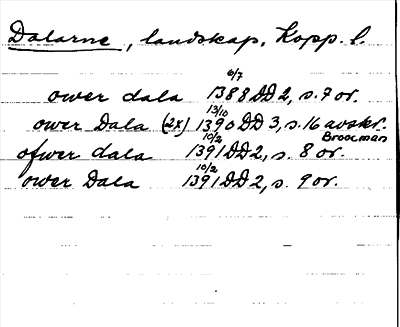 Dalarne, landskap, Kopp. l.
6/7
ower dala 1388 DD 2, s. 7 or.
13/10
ower Dala (2x) 1390 DD 3, s. 16 avskr.
Brocman
10/2
ofwer dala 1391 DD 2, s. 8 or.
10/2
ower Dala 1391 DD 2, s. 9 or.